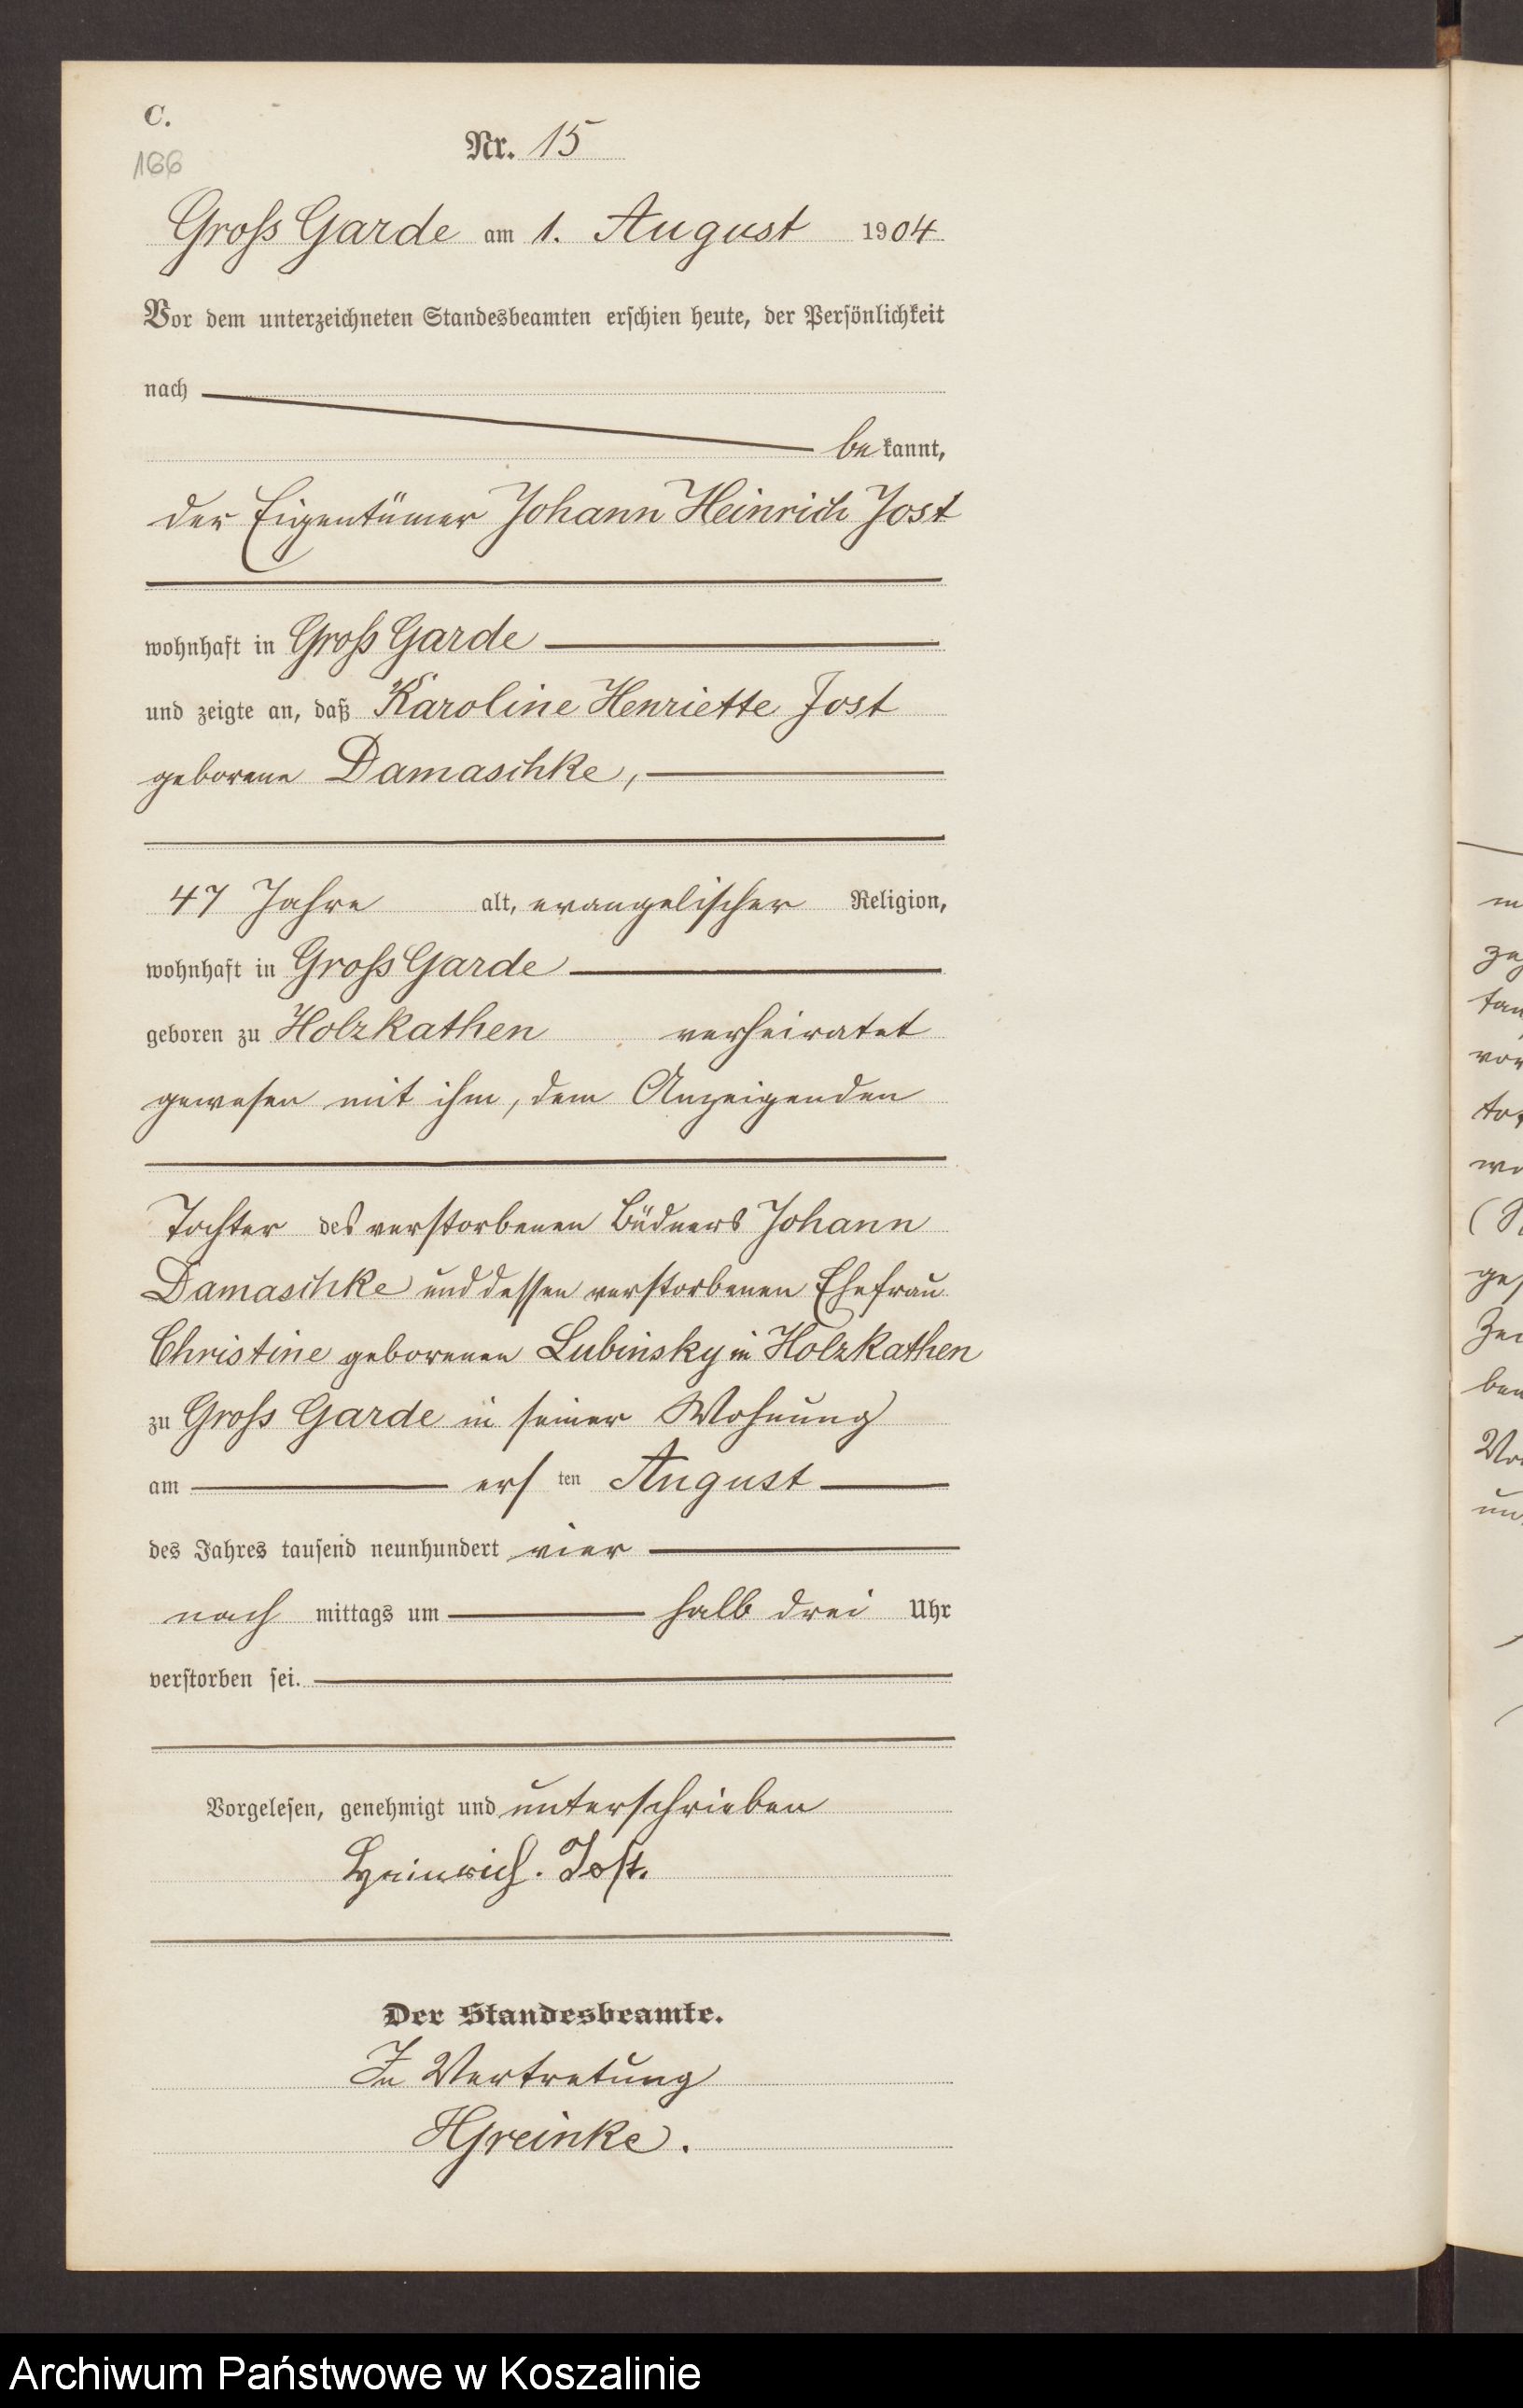 C.
166
Nr. 15
Gross Garde am 1. August 1904
Vor dem unterzeichneten Standesbeamten erschien heute, der Persönlichkeit
nach
bekannt,
der Eigentümer Johann Heinrich Jost
wohnhaft in Gross Garde
und zeigte an, daß Karoline Henriette Jost
geborene Damaschke,
47 Jahre alt, evangelischer Religion,
wohnhaft in Gross Garde
geboren zu Holzkathen verheiratet
gewesen mit ihm, dem Anzeigenden
Tochter des verstorbenen Büdners Johann
Damaschke und dessen verstorbenen Ehefrau
Christine geborenen Lubinsky in Holzkathen
zu Gross Garde in seiner Wohnung
am ersten August
des Jahres tausend neunhundert vier
nach mittags um halb drei Uhr
verstorben sei.
Vorgelesen, genehmigt und unterschrieben
Heinrich. Jost.
Der Standesbeamte.
In Vertretung
HGreinke.
Archiwum Państwowe w Koszalinie